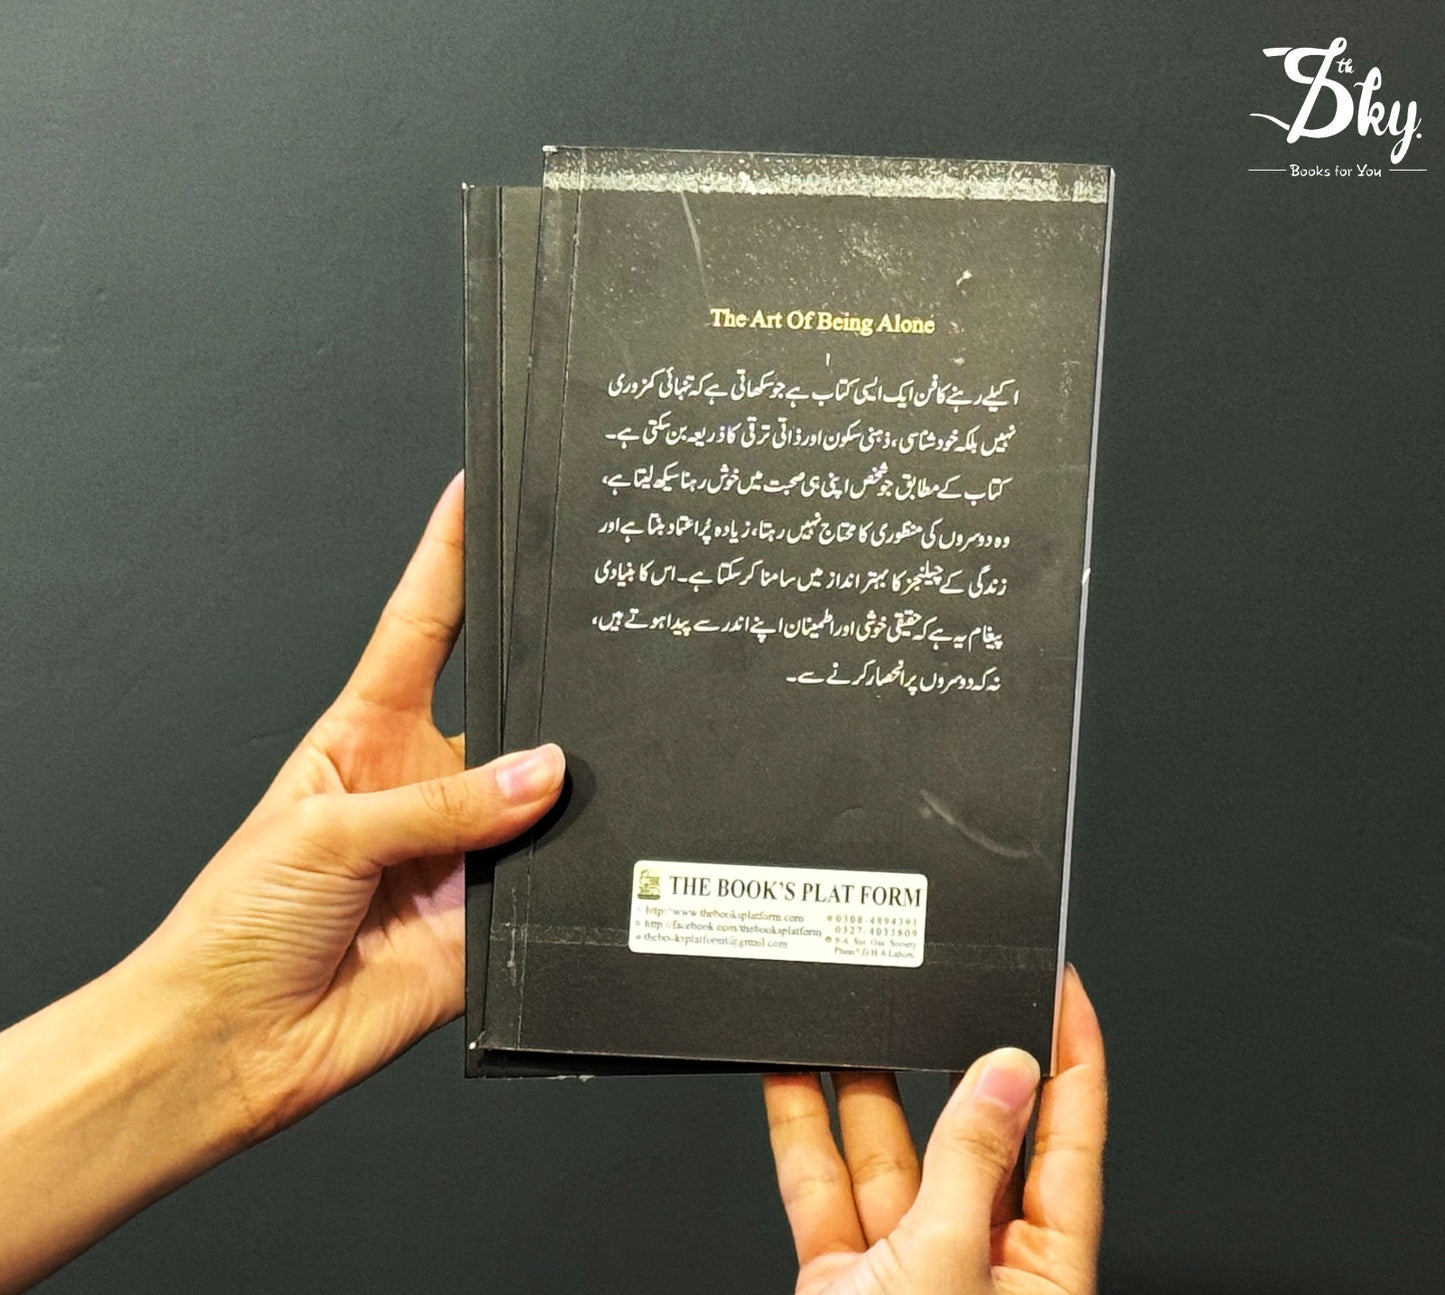 The Art Of Being Alone
اکیلے رہنے کا فن ایک ایسی کتاب ہے جو سکھاتی ہے کہ تنہائی کمزوری
نہیں بلکہ خود شناسی، ذہنی سکون اور ذاتی ترقی کا ذریعہ بن سکتی ہے۔
کتاب کے مطابق جو شخص اپنی ہی صحبت میں خوش رہنا سیکھ لیتا ہے،
وہ دوسروں کی منظوری کا محتاج نہیں رہتا، زیادہ پُر اعتماد بنتا ہے اور
زندگی کے چیلنجز کا بہتر انداز میں سامنا کر سکتا ہے۔ اس کا بنیادی
پیغام یہ ہے کہ حقیقی خوشی اور اطمینان اپنے اندر سے پیدا ہوتے ہیں،
نہ کہ دوسروں پر انحصار کرنے سے۔
THE BOOK'S PLAT FORM
http://www.thebooksplatform.com
http://facebook.com/thebooksplatform
thebooksplatform1@gmail.com
0308-4894391
0327-4035809
9-A Sui Gas Society
Phase 5 D.H.A Lahore.
Sky.
th
Books for You